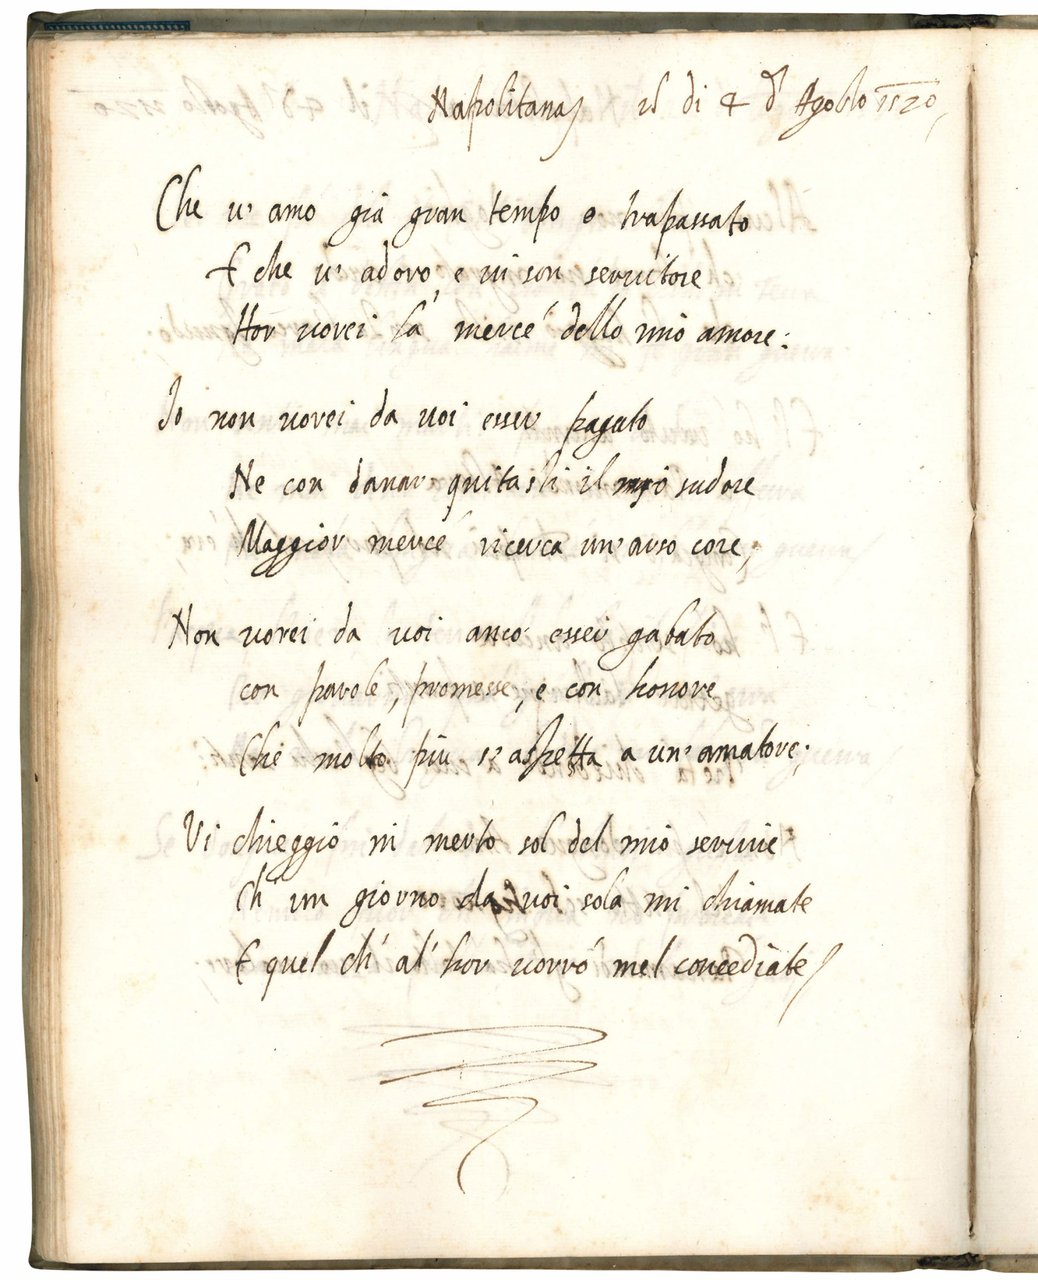 Napolitana il di 4 d' Agosto 1520
Che v' amo già gran tempo e trapassato
E che v' adoro, e vi son servitore
Hor vorei la mercé dello mio amore:
Io non vorei da voi esser pagato
Ne con danar quitasti il mio sudore
Maggior mercé ricerca un' arso core;
Non vorei da voi anco esser gabato
con parole, promesse, e con honore
Che molto più s' aspetta a un' amatore;
Vi chieggio in merto sol del mio servire
Ch' un giorno da voi sola mi chiamate
E quel ch' al' hor vorró mel concediate